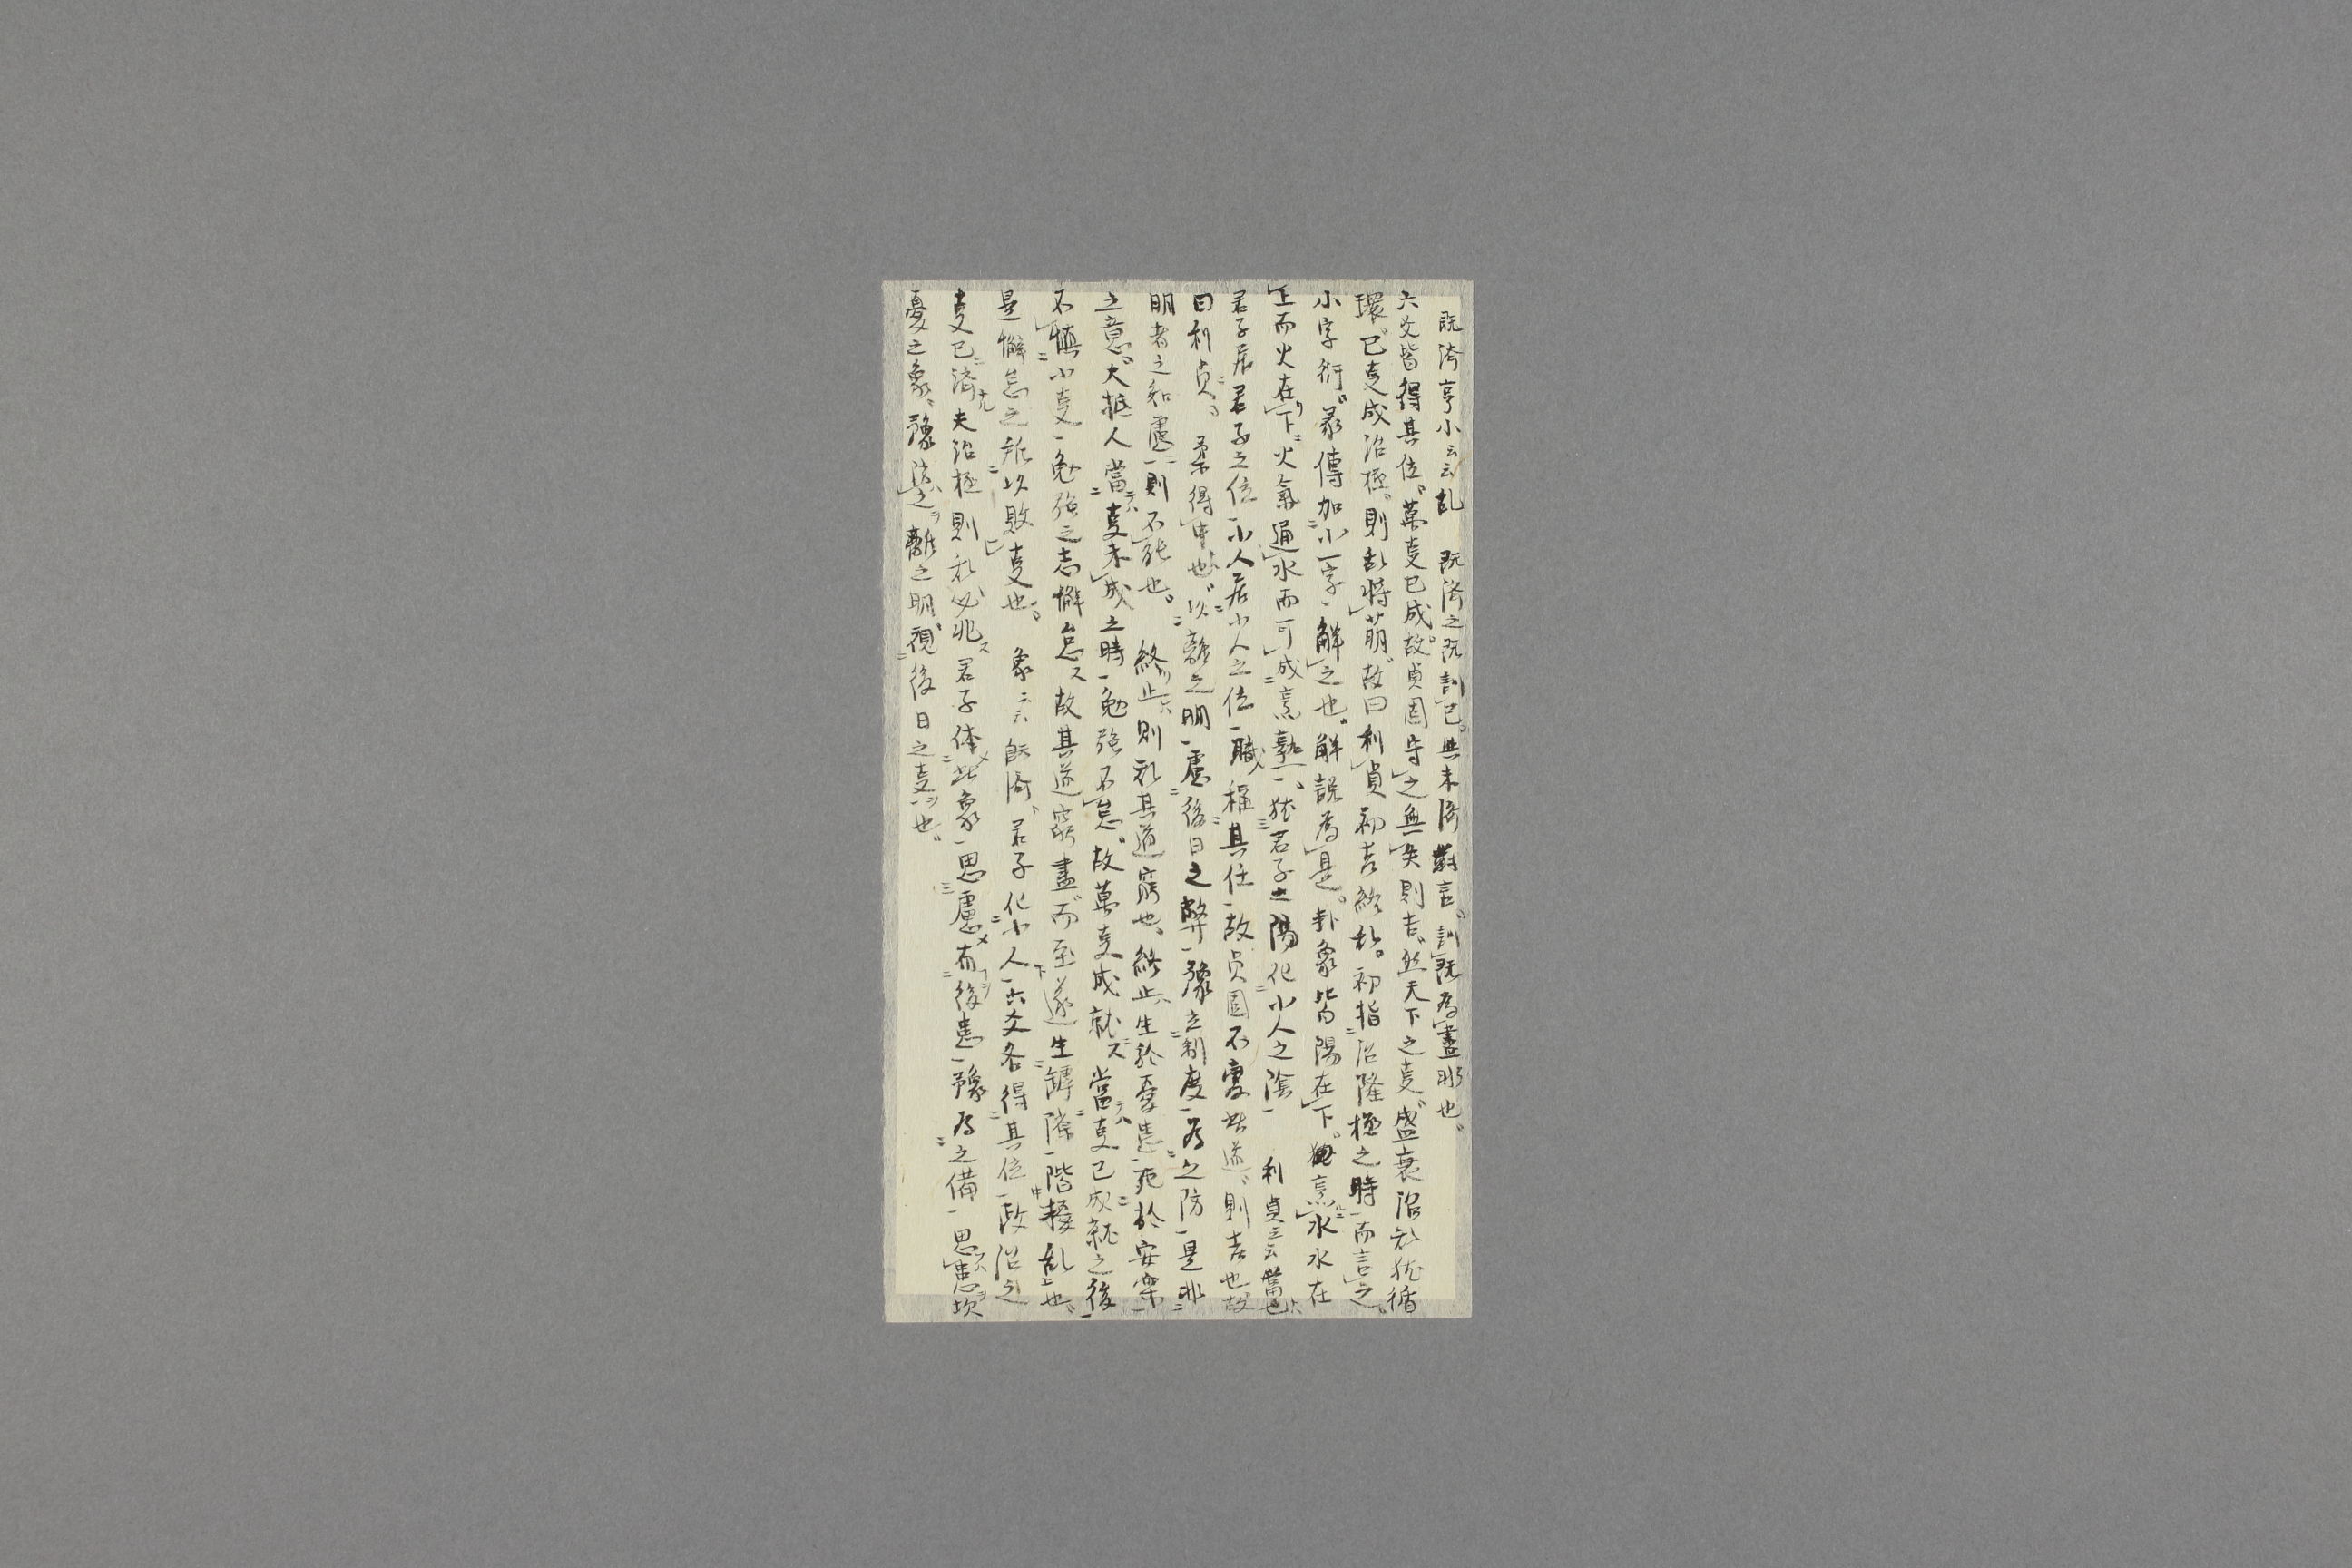 既済亨小云云乱　既済之既訓已。与未済對言。訓既為盡非也。
六爻皆得其位。萬叓已成。故貞固守之無失則吉。然天下之叓。盛衰治乱犹循
環。已叓成治極。則乱將萌。故曰利貞初吉終乱。初指治隆極之時而言之。
小字衍。彖傳加小字解之也。解説為是。卦象皆陽在下。犹烹水水在
上而火在下。火氣通水而可成烹熟。犹君子之陽化小人之陰　利貞云云當也
君子居君子之位小人居小人之位職称其任故貞固不変此道。則吉也故
曰利貞。　柔得中也。以離之明慮後日之弊豫立制度為之防是非
明者之知慮則不能也。　終止則乱其道窮也。終止ハ生於憂患死於安楽
之意。大抵人當叓未成之時勉強不怠。故萬叓成就ス當叓已成就之後
不慎小叓勉強之志懈怠ス故其道窮盡。而至遂生罅隙階擾乱也。
是懈怠之所以敗叓也。　象云云既済。君子化小人六爻各得其位政治之
叓已済夫治極則乱必兆ス君子体此象思慮而後患豫為之備思患坎
憂之象。豫防之離之明視後日之叓也。